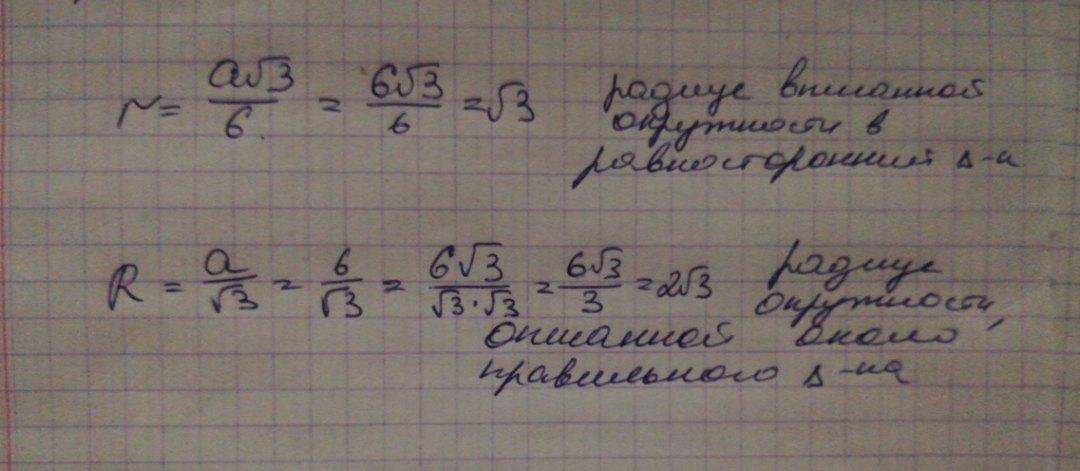 r = a√3/6 = 6√3/6 = √3 радиус вписанной
окружности в
равносторонний Δ-к
R = a/√3 = 6/√3 = 6√3/√3·√3 = 6√3/3 = 2√3 радиус
окружности,
описанной около
правильного Δ-ка